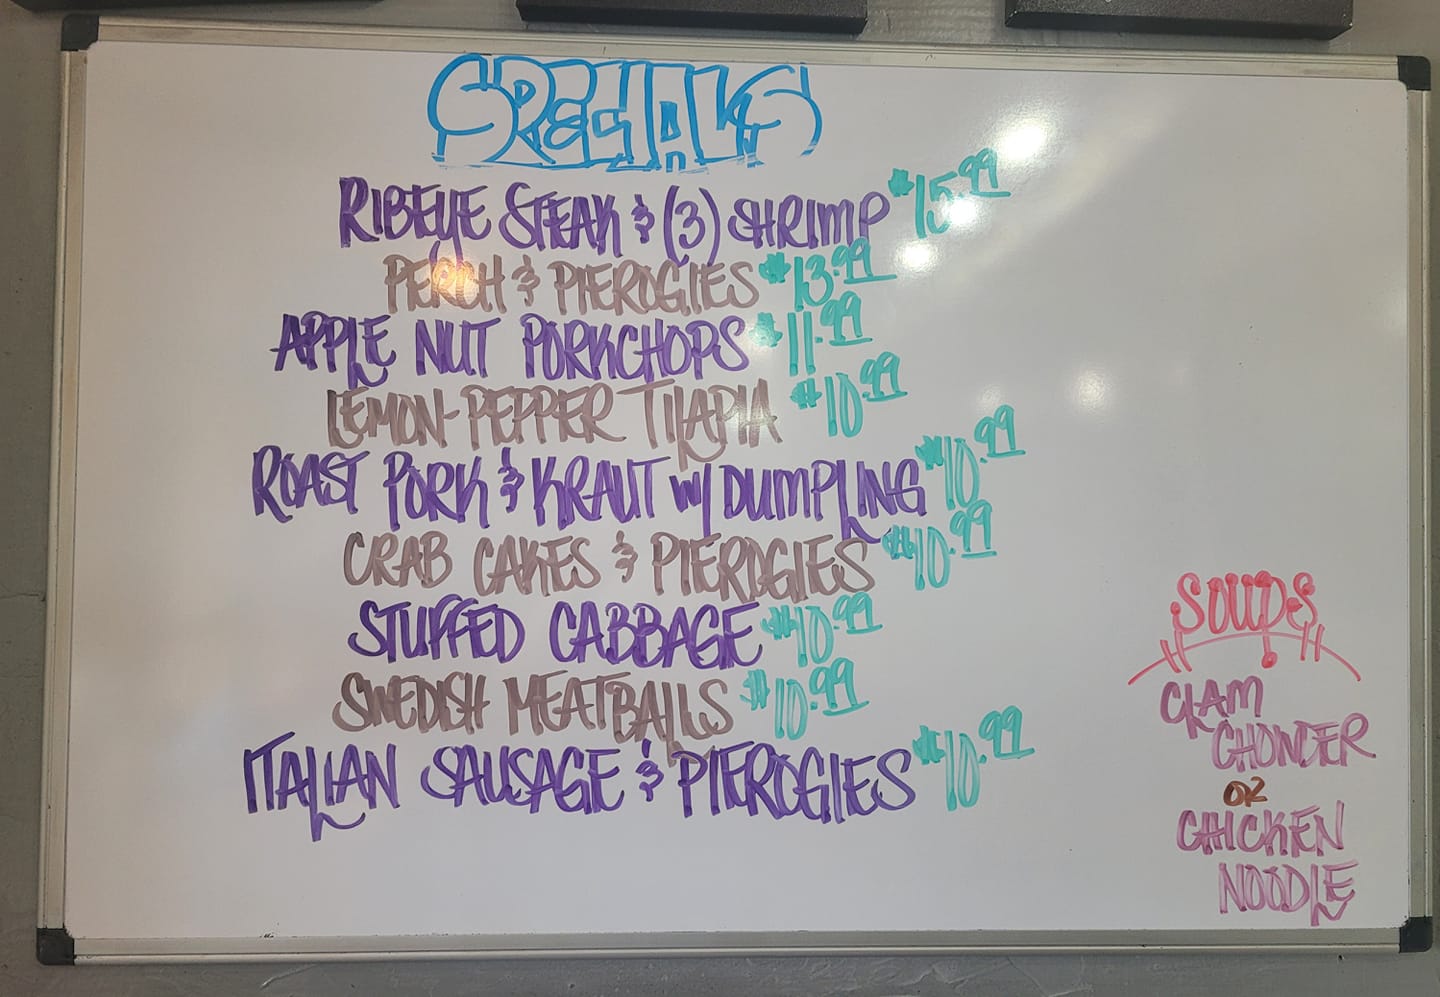 SPECIALS
RIBEYE STEAK & (3) SHRIMP $15.99
PERCH & PIEROGIES $13.99
APPLE NUT PORKCHOPS $11.99
LEMON-PEPPER TILAPIA $10.99
ROAST PORK & KRAUT W/ DUMPLING $10.99
CRAB CAKES & PIEROGIES $10.99
STUFFED CABBAGE $10.99
SWEDISH MEATBALLS $10.99
ITALIAN SAUSAGE & PIEROGIES $10.99
SOUPS
CLAM
CHOWDER
OR
CHICKEN
NOODLE